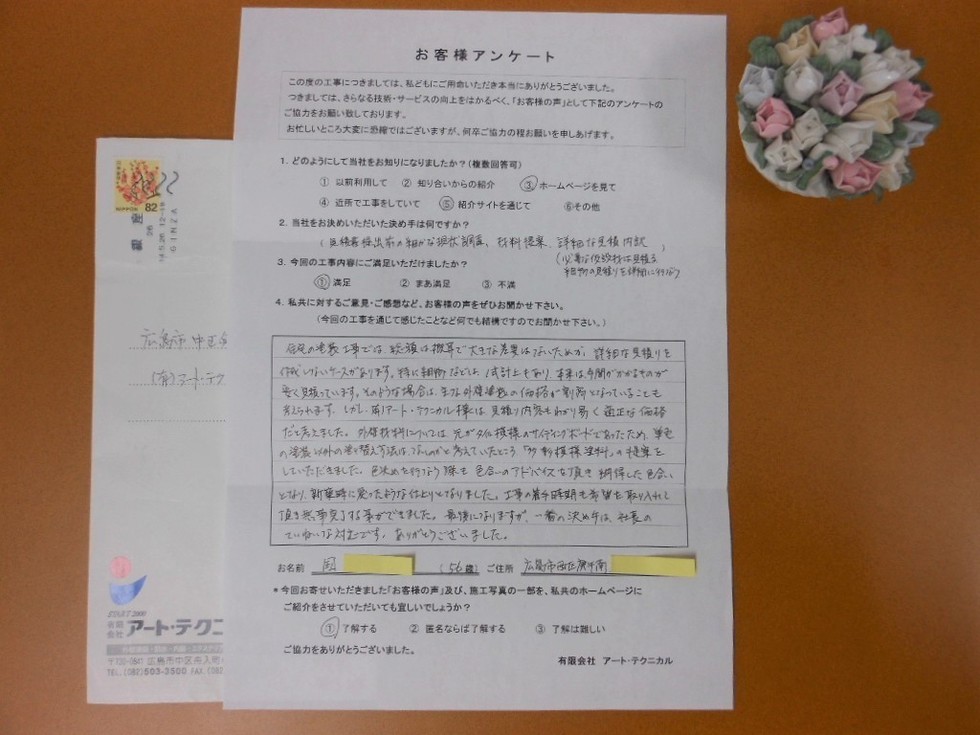 お客様アンケート
この度の工事につきましては、私どもにご用命いただき本当にありがとうございました。
つきましては、さらなる技術・サービスの向上をはかるべく、「お客様の声」として下記のアンケートの
ご協力をお願い致しております。
お忙しいところ大変に恐縮ではございますが、何卒ご協力の程お願いを申しあげます。
1. どのようにして当社をお知りになりましたか？(複数回答可)
① 以前利用して ② 知り合いからの紹介 ③ ホームページを見て
④ 近所で工事をしていて ⑤ 紹介サイトを通じて ⑥その他
2. 当社をお決めいただいた決め手は何ですか？
(見積書提出前の細かな現状調査、材料提案、詳細な見積内訳
3. 今回の工事内容にご満足いただけましたか？
① 満足 ② まあ満足 ③ 不満
4. 私共に対するご意見・ご感想など、お客様の声をぜひお聞かせ下さい。
(今回の工事を通じて感じたことなど何でも結構ですのでお聞かせ下さい。)
住宅の塗装工事では、総額は概算で大きな差異はないためか、詳細な見積りを
作成しないケースがあります。特に細部などは、1式計上もあり、本来は手間がかかるものが
安く見積っています。そのような場合は、主な外壁塗装の価格が割高となっていることも
考えられます。しかし、(有)アート・テクニカル様は、見積り内容もわかり易く適正な価格
だと考えました。外壁材料については、元がタイル模様のサイディングボードであったため、単色
の塗装以外の塗り替え方法はないものかと考えていたところ「多彩模様塗料」の提案を
していただきました。色決めを行なう際も色合いのアドバイスを頂き納得した色合い
となり、新築時に戻ったような仕上りとなりました。工事の着手時期も希望を取り入れて
頂き無事完了する事ができました。最後になりますが、一番の決め手は、社長の
ていねいな対応です。ありがとうございました。
お名前 (56歳) ご住所 広島市西区庚午南
*今回お寄せいただきました「お客様の声」及び、施工写真の一部を、私共のホームページに
ご紹介をさせていただいても宜しいでしょうか？
① 了解する ② 匿名ならば了解する ③ 了解は難しい
ご協力をありがとうございました。
有限会社 アート・テクニカル
NIPPON 82
GINZA
広島市中区
(有)アート・テク
START 2000
有限会社 アート・テクニ
TEL.(082)503-3500 FAX